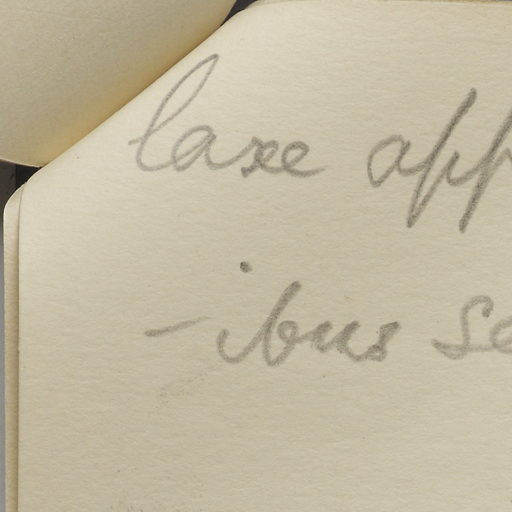 laxe app
- ibus se